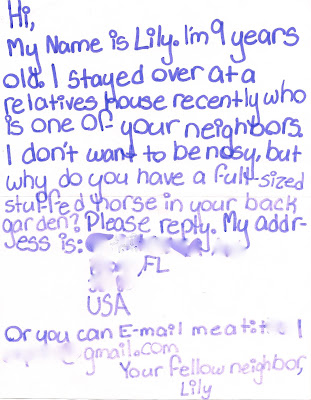 Hi,
My Name is Lily. I'm 9 years
old. I stayed over at a
relatives house recently who
is one of your neighbors.
I don't want to be nosy, but
why do you have a full-sized
stuffed horse in your back
garden? Please reply. My addr-
ess is:
,FL
USA
Or you can E-mail me at:
gmail.com
Your fellow neighbor,
Lily